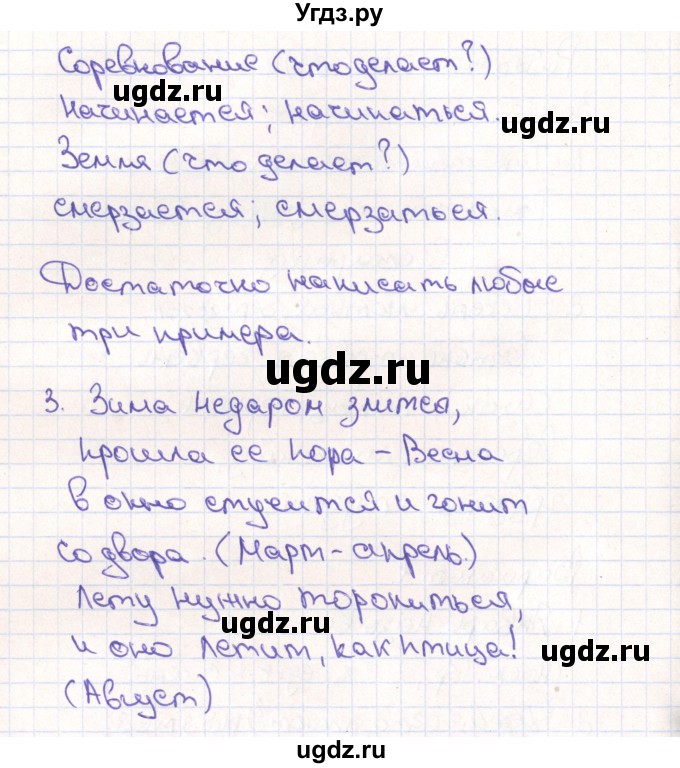 Угдз.ру
Соревнование (что делает?)
ugdz.ru
начинается; начинаться.
ugdz.ru
Земля (что делает?)
смерзается; смерзаться.
Достаточно написать любые
три примера.
ugdz.ru
3. Зима недаром злится,
прошла ее пора - Весна
в окно стучится и гонит
со двора. (Март-апрель.)
Лету нужно торопиться,
ugdz.ru
и оно летит, как птица!
ugdz.ru
(Август)
ugdz.ru